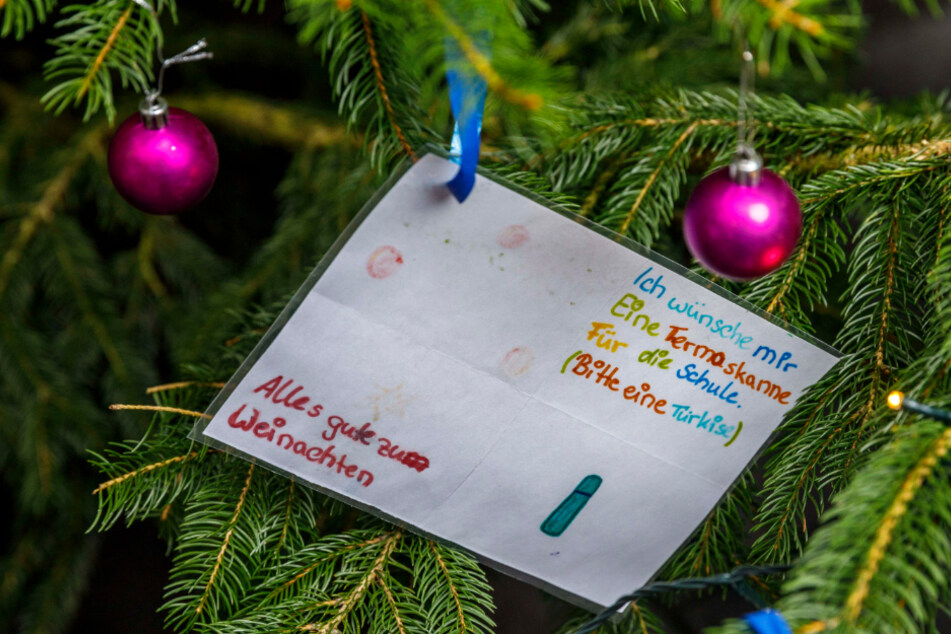 Ich wünsche mir
Eine Termaskanne
Für die Schule.
(Bitte eine Türkise)
Alles gute zum
Weinachten